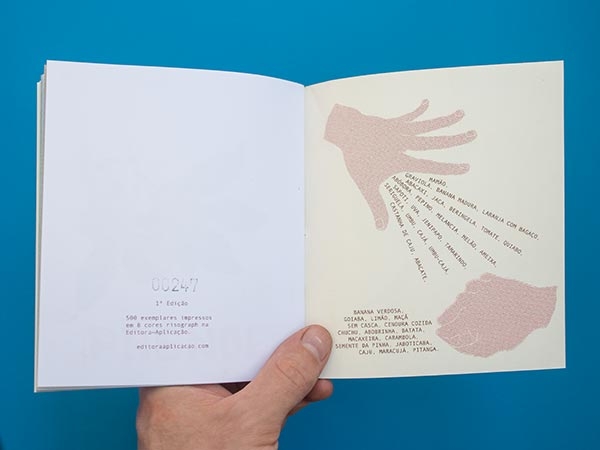 00247
1ª Edição
500 exemplares impressos
em 6 cores risograph na
Editora—Aplicação.
editoraaplicacao.com
MAMÃO,
GRAVIOLA, BANANA MADURA, LARANJA COM BAGAÇO,
ABACAXI, JACA, BERINGELA, TOMATE, QUIABO,
ABÓBORA, PEPINO, MELANCIA, MELÃO, AMEIXA,
SAPOTI, UVA, JENIPAPO, TAMARINDO,
SERIGUELA, UMBU, CAJÁ, UMBU-CAJÁ,
CASTANHA DE CAJU, ABACATE.
BANANA VERDOSA,
GOIABA, LIMÃO, MAÇÃ
SEM CASCA, CENOURA COZIDA
CHUCHU, ABOBRINHA, BATATA,
MACAXEIRA, CARAMBOLA,
SEMENTE DA PINHA, JABOTICABA,
CAJU, MARACUJÁ, PITANGA.